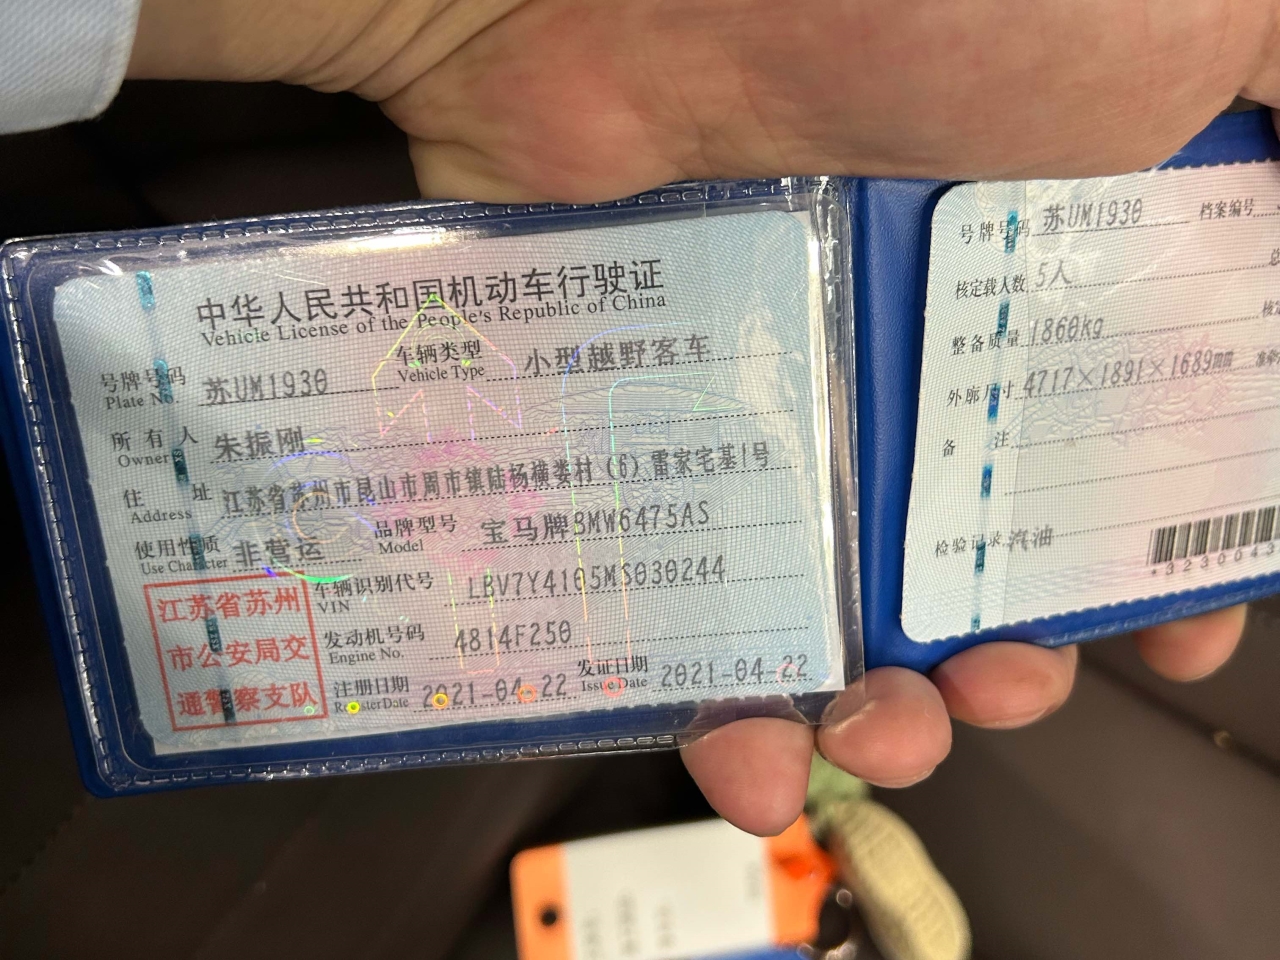 中华人民共和国机动车行驶证
Vehicle License of the People's Republic of China
号牌号码 苏UM1930 车辆类型 小型越野客车
Plate No. Vehicle Type
所有人 朱振刚
Owner
住址 江苏省苏州市昆山市周市镇陆杨横娄村(6)雷家宅基1号
Address
使用性质 非营运 品牌型号 宝马牌BMW6475AS
Use Character Model
江苏省苏州
市公安局交
通警察支队
车辆识别代号 LBV7Y4105MS030244
VIN
发动机号码 4814F250
Engine No.
注册日期 2021-04-22 发证日期 2021-04-22
Register Date Issue Date
号牌号码 苏UM1930 档案编号
核定载人数 5人 总
整备质量 1860kg 核定
外廓尺寸 4717×1891×1689mm
备注
检验记录 汽油
*3230043